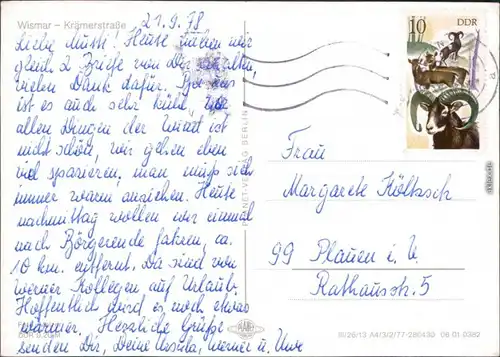 Wismar – Krämerstraße
21.9.78
Liebe Mutti! Heute haben wir
gleich 2 Briefe von Dir erhalten,
vielen Dank dafür. Bei uns
ist es auch sehr kühl, vor
allen Dingen der Wind ist
nicht schön, wir gehen eben
viel spazieren, man muß sich
immer warm anziehen. Heute
nachmittag wollen wir einmal
nach Börgerende fahren, ca.
10 km. entfernt. Da sind von
Werner Kollegen auf Urlaub.
Hoffentlich wird es noch etwas
wärmer. Herzliche Grüße
senden Dir, Deine Ursula, Werner u. Uwe
PLANET-VERLAG BERLIN
10 DDR
Frau
Margarete Költzsch
99 Plauen i. V.
Rathausstr. 5
PLANET
III/26/13 A4/3/2/77-280430 06 01 0382